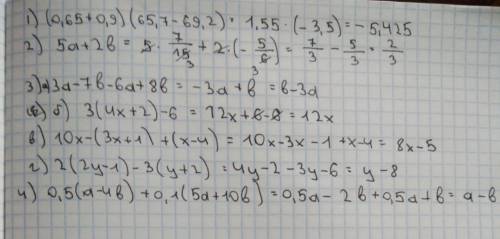 1) (0,65+0,9)(65,7-69,2) = 1,55 · (-3,5) = -5,425
2) 5a+2b = 5 · 7/15 3 + 2 · (-5/6 3) = 7/3 - 5/3 = 2/3
3) a) 3a-7b-6a+8b = -3a+b = b-3a
б) 3(4x+2)-6 = 12x+6-6 = 12x
в) 10x-(3x+1)+(x-4) = 10x-3x-1+x-4 = 8x-5
г) 2(2y-1)-3(y+2) = 4y-2-3y-6 = y-8
4) 0,5(a-4b)+0,1(5a+10b) = 0,5a-2b+0,5a+b = a-b